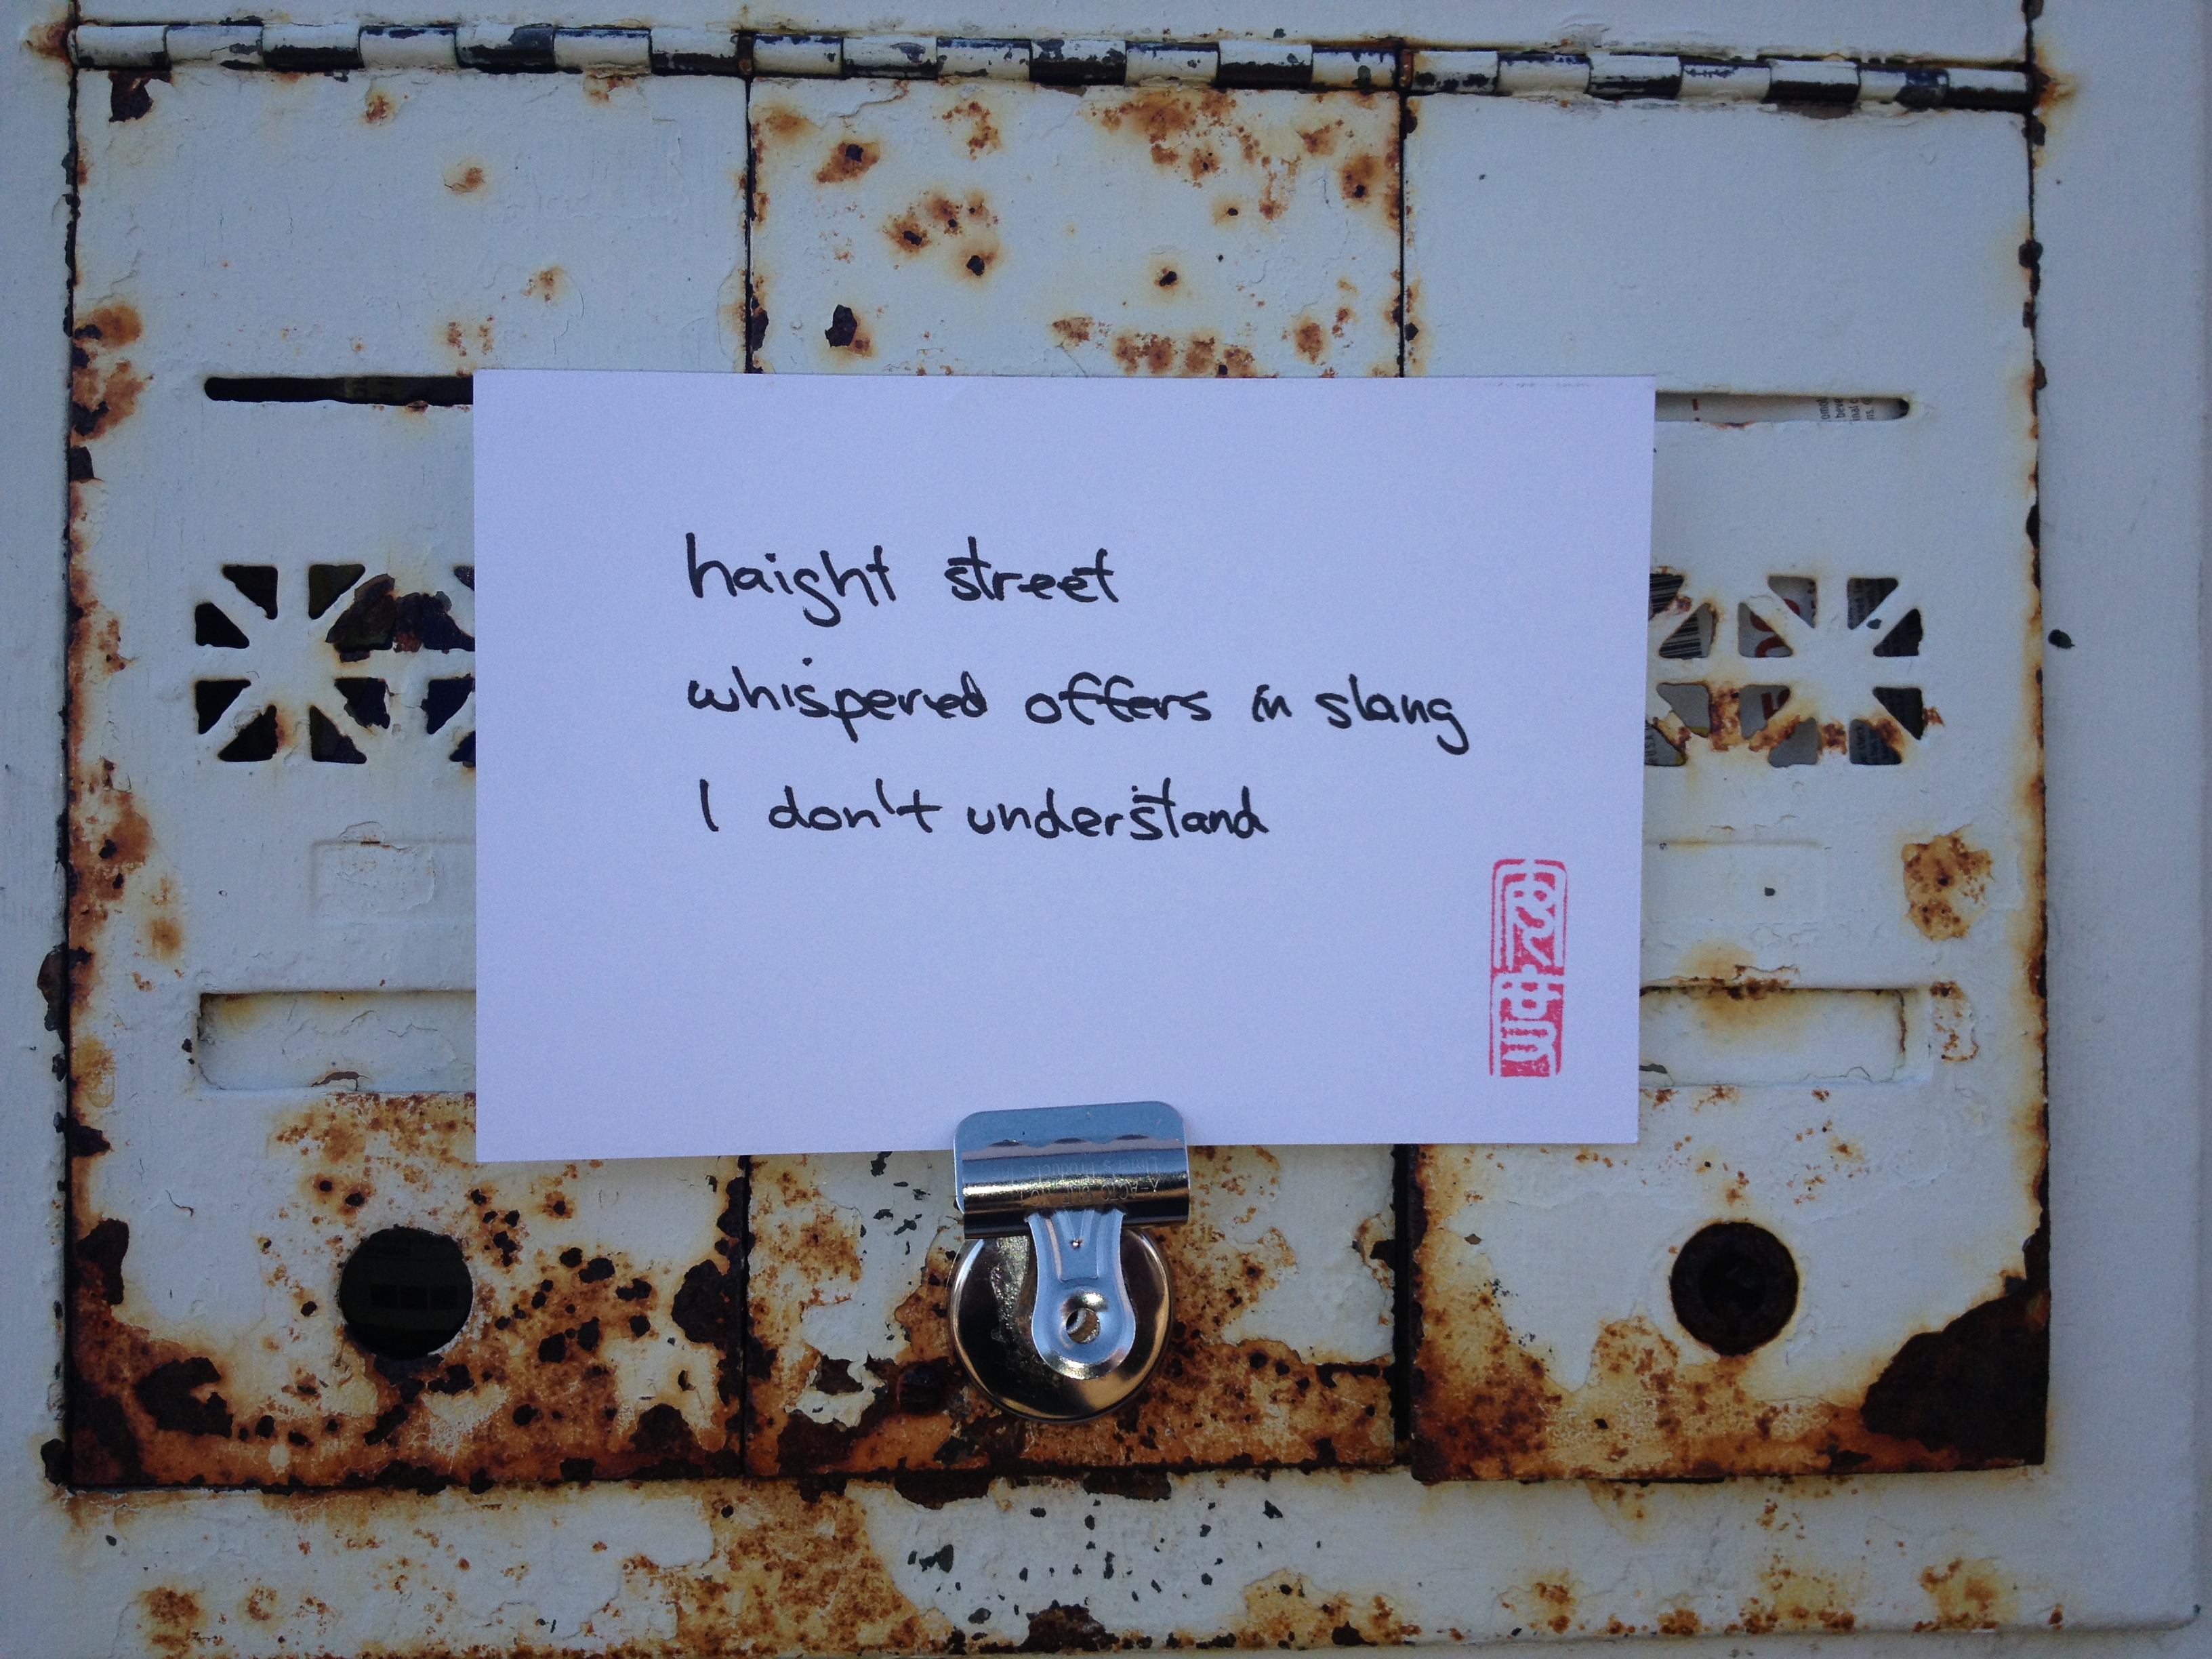 haight street
whispered offers in slang
I don't understand